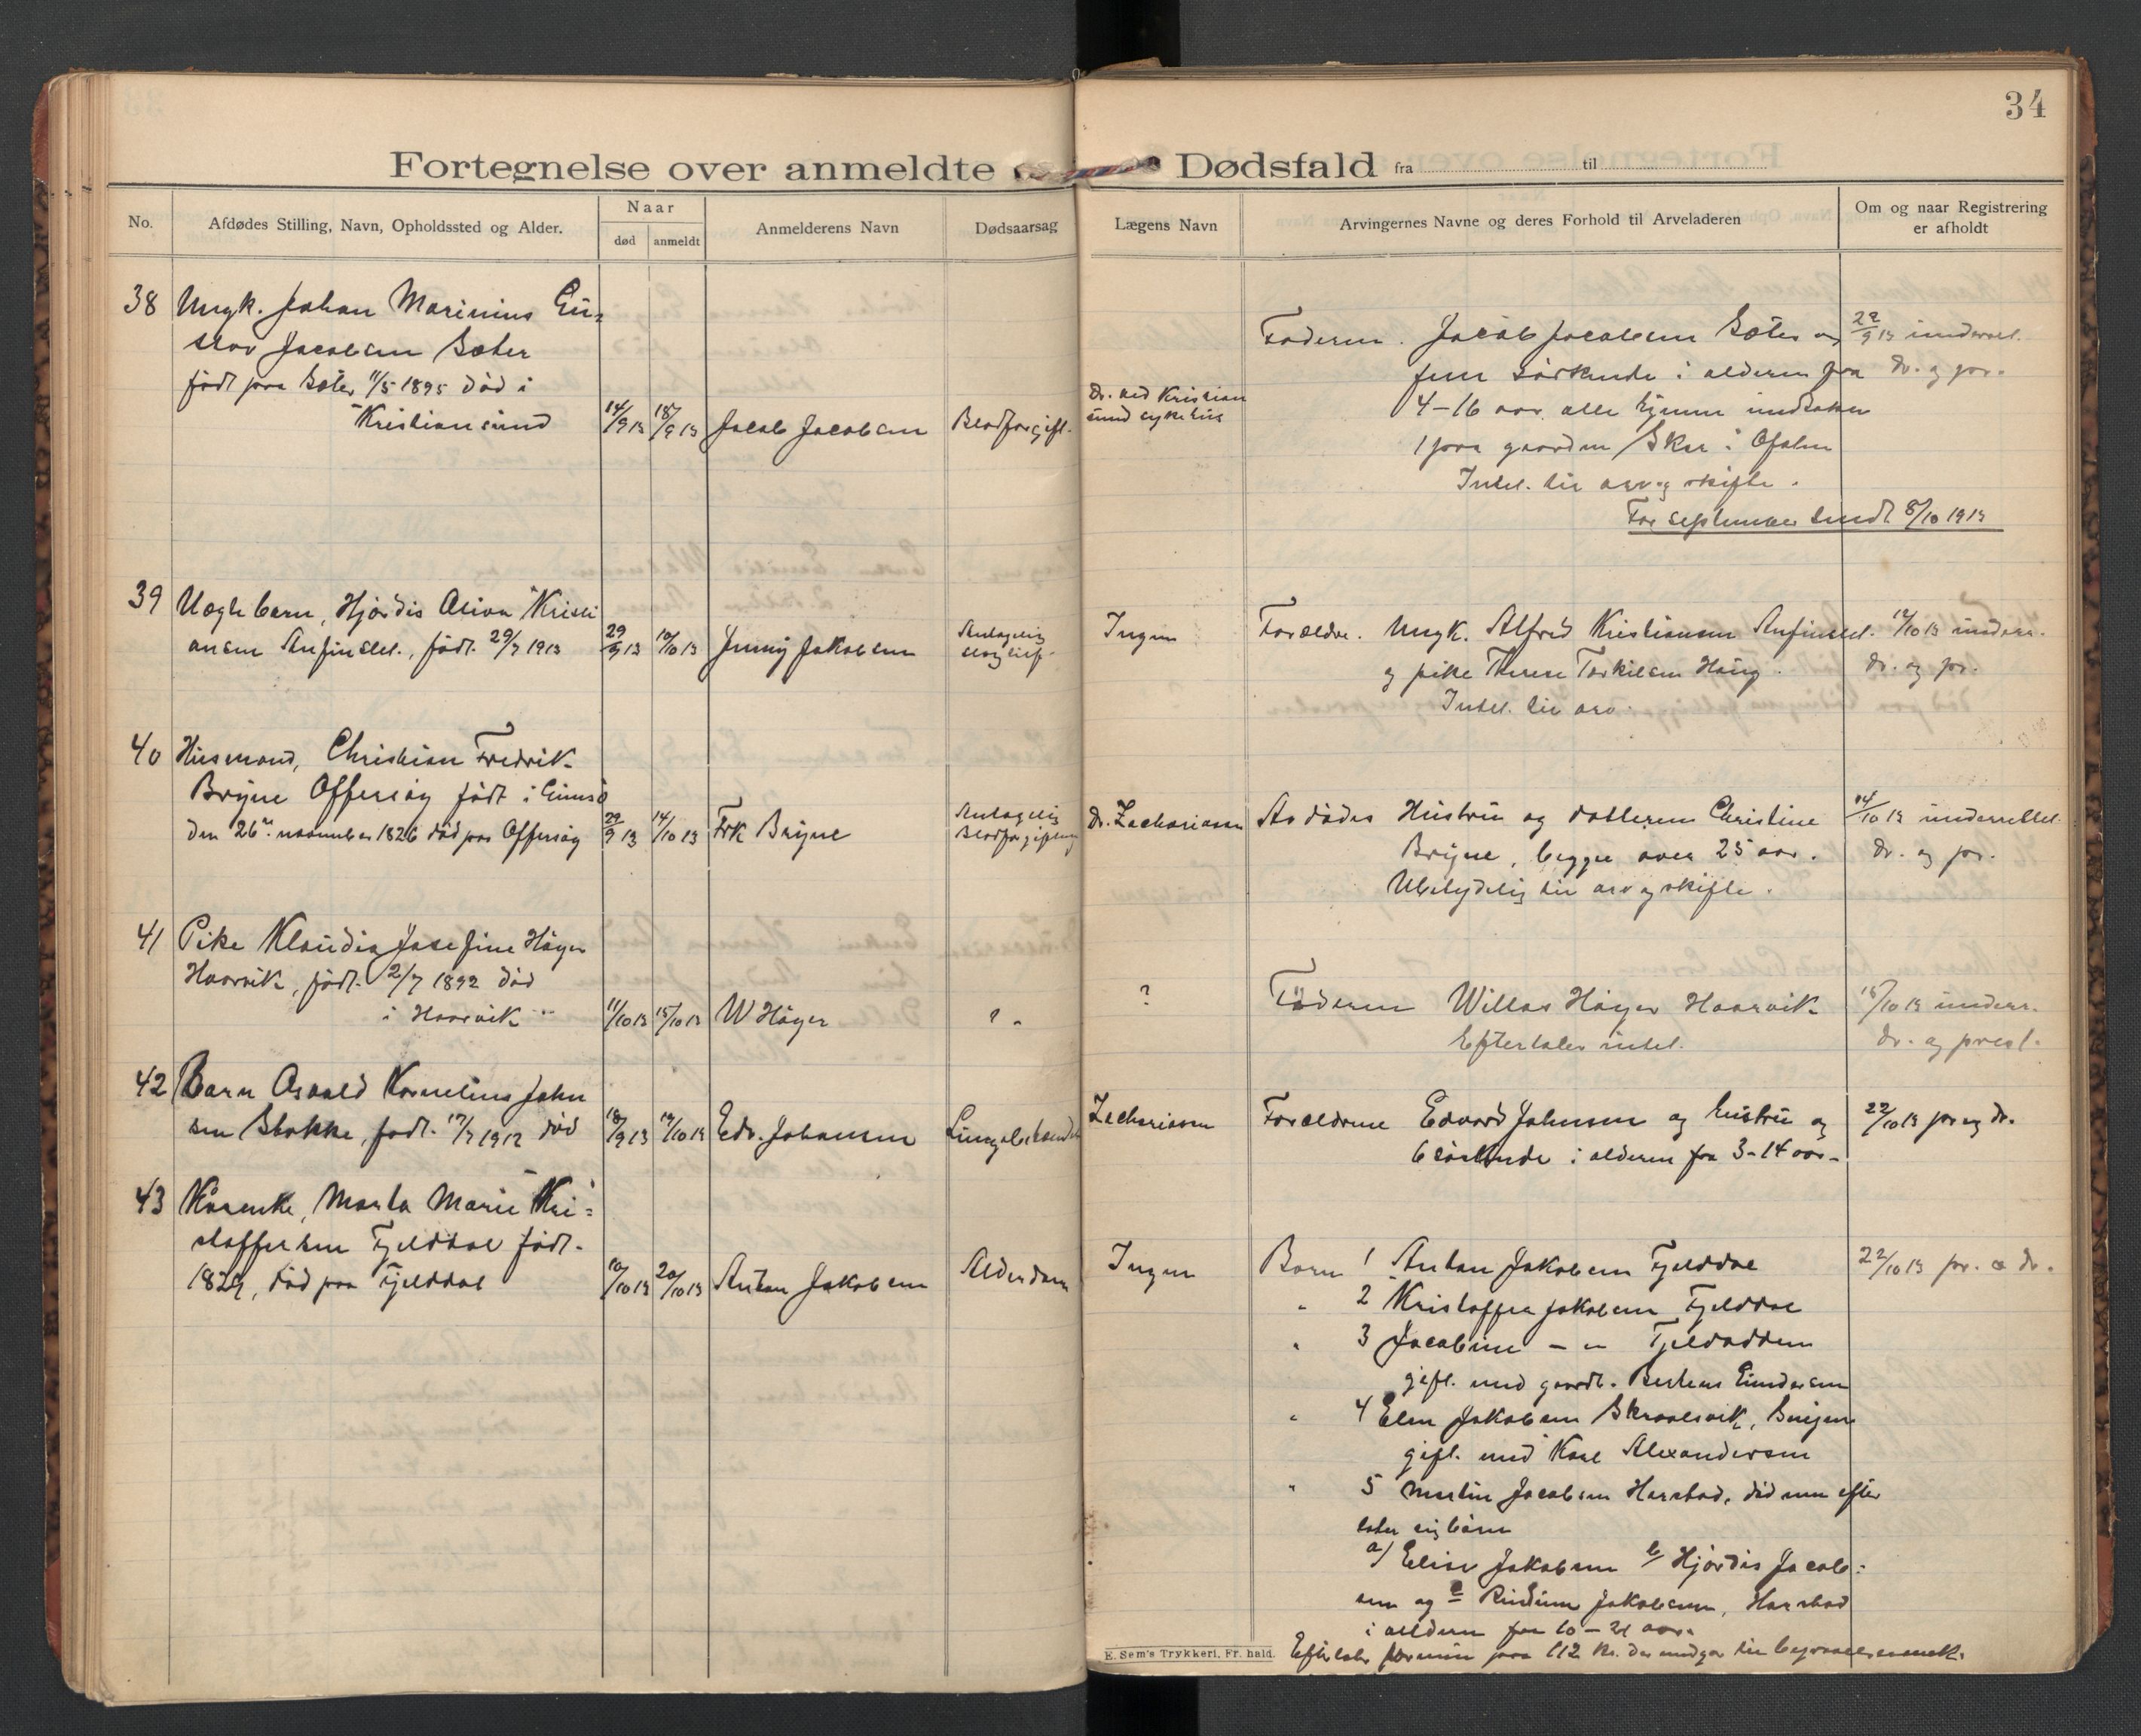 34
Fortegnelse over anmeldte Dødsfald fra til
No.
Afdødes Stilling, Navn, Opholdssted og Alder.
Naar
død
anmeldt
Anmelderens Navn
Dødsaarsag
Lægens Navn
Arvingernes Navne og deres Forhold til Arveladeren
Om og naar Registrering
er afholdt
38 Ungk. Johan Marinius
Jacobsen Sæter
født paa Sæter 11/5 1895 død i
Kristiansund 14/9 13 18/9 13 Jacob Jacobsen Blodforgift.
Dr. ved Kristian
sund sykehus
Faderen. Jacob Jacobsen Sæter og
fem søskende i alderen fra
4-16 aar alle hjemme undtaken
1 paa gaarden i Ofoten
Intet til arv og skifte.
22/9 13 underret.
dr. og pr.
For september sendt 8/10 1913
39 Uægte barn, Hjørdis Oliva Kristi
ansen Anfinslet., født 29/7 1913 29/9 13 10/10 13 Jenny Jakobsen
Antagelig
Ingen
Forældre. Ungk. Alfred Kristiansen Anfinslet.
og pike Therese Torkilsen Haug.
Intet til arv.
12/10 13 underr.
dr. og pr.
40 Husmand, Christian Fredrik
Bryne Offersøy født i Gimsø
den 26de november 1826 død paa Offersøy 29/9 13 14/10 13 Frk Bryne
Antagelig
Blodforgiftning
Dr. Zachariassen
Avdødes Hustru og datteren Christine
Bryne, begge over 25 aar.
Ubetydelig til arv og skifte.
14/10 13 underrettet
dr. og pr.
41 Pike Klaudia Josefine Høyer
Haarvik, født 2/7 1892 død
i Haarvik 11/10 13 15/10 13 W Høyer ? -
?
Faderen Willas Høyer Haarvik
Efterlater intet.
16/10 13 underr.
dr. og prest.
42 Barn Osvald Kornelius John
sen Stokke, født 17/7 1912 død 18/9 13 19/10 13 Edv. Johansen Lungebetændelse
Zachariassen
Forældrene Edvard Johnsen og hustru og
6 søskende i alderen fra 3-14 aar-
22/10 13 pr og dr.
43 Kaarenke, Marta Marie Kri=
stoffersen Fjelddal født
1829, død paa Fjelddal 10/10 13 20/10 13 Anton Jakobsen Alderdom
Ingen
Børn 1 Anton Jakobsen Fjelddal
" 2 Kristoffer Jakobsen Fjelddal
" 3 Jacobine - " - Fjelddalen
gift med gaardb. Gundersen
" 4 Jakobsen Skraalsvik,
gift med Karl Alexandersen
" 5 Martin Jacobsen Harstad, død men efter
later sig børn
a/ Elise Jakobsen b/ Hjørdis Jacob=
sen og c Jakobsen, Harstad
i alderen fra 10-21 aar.
Efterlater formue paa 112 kr. der medgaar til begravelsesomk.
22/10 13 pr. & dr.
E. Sem's Trykkeri, Fr. hald.